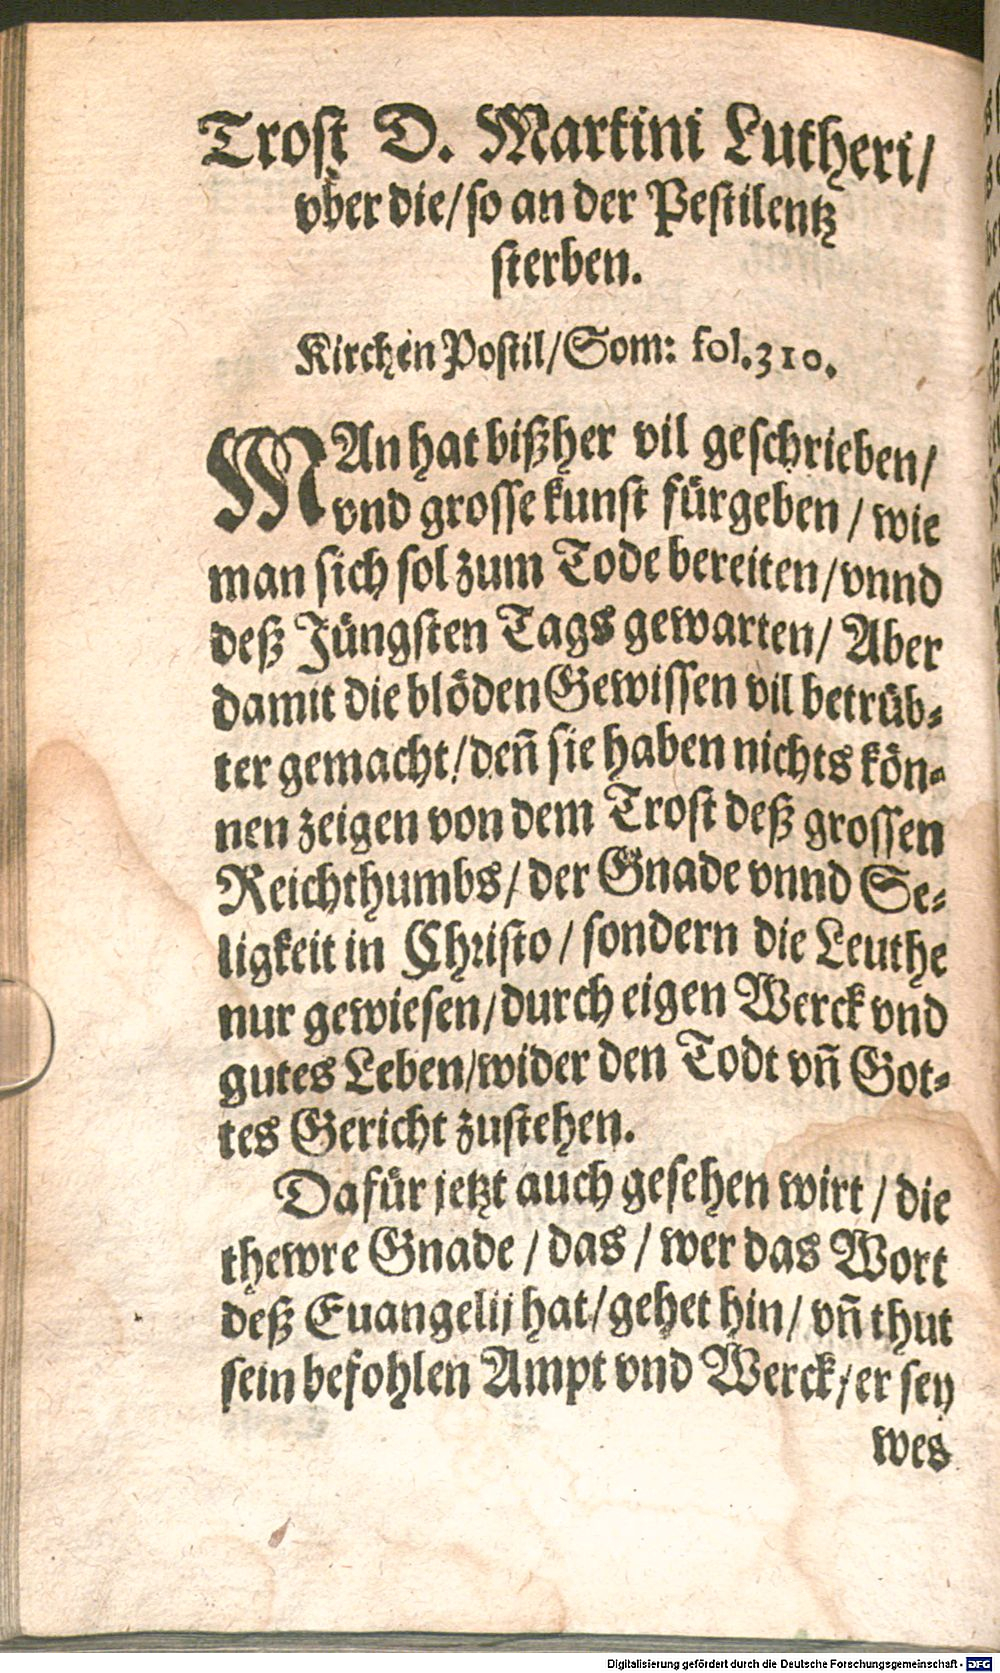 Trost D. Martini Lutheri/
vber die/so an der Pestilentz
sterben.
Kirchen Postil/Som: fol.310.
MAn hat bißher vil geschrieben/
vnd grosse kunst fürgeben/wie
man sich sol zum Tode bereiten/vnnd
deß Jüngsten Tags gewarten/Aber
damit die blöden Gewissen vil betrüb-
ter gemacht/deñ sie haben nichts kön-
nen zeigen von dem Trost deß grossen
Reichthumbs/der Gnade vnnd Se-
ligkeit in Christo/sondern die Leuthe
nur gewiesen/durch eigen Werck vnd
gutes Leben/wider den Todt vñ Got-
tes Gericht zustehen.
Dafür jetzt auch gesehen wirt/die
thewre Gnade/das/wer das Wort
deß Euangelij hat/gehet hin/vñ thut
sein befohlen Ampt vnd Werck/er sey
wes
Digitalisierung gefördert durch die Deutsche Forschungsgemeinschaft - DFG